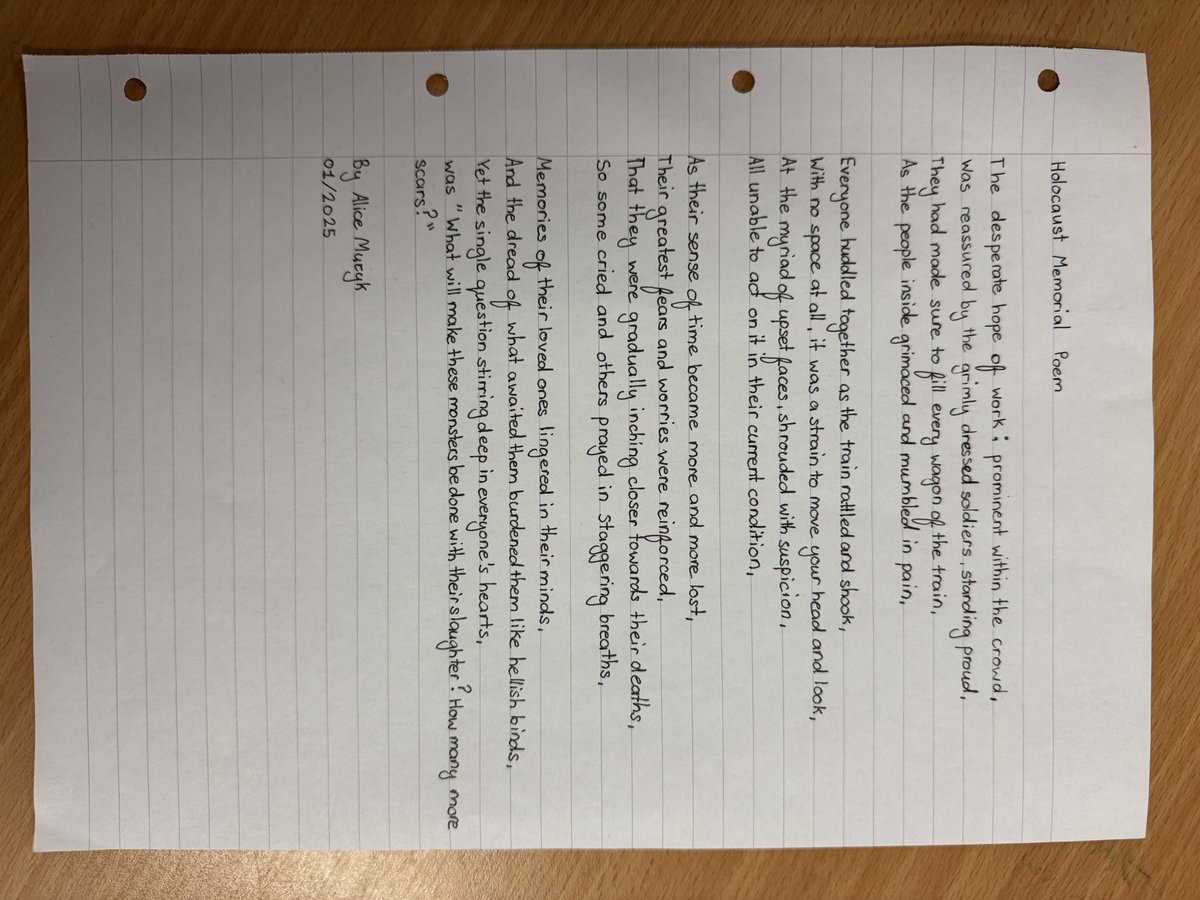 Holocaust Memorial Poem
The desperate hope of work; prominent within the crowd,
was reassured by the grimly dressed soldiers, standing proud,
They had made sure to fill every wagon of the train,
As the people inside grimaced and mumbled in pain,
Everyone huddled together as the train rattled and shook,
With no space at all, it was a strain to move your head and look,
At the myriad of upset faces, shrouded with suspicion,
All unable to act on it in their current condition,
As their sense of time became more and more lost,
Their greatest fears and worries were reinforced,
That they were gradually inching closer towards their deaths,
So some cried and others prayed in staggering breaths,
Memories of their loved ones lingered in their minds,
And the dread of what awaited them burdened them like hellish binds,
Yet the single question stirring deep in everyone's hearts,
was "What will make these monsters be done with their slaughter? How many more
scars?"
By Alice Mucyk
01/2025